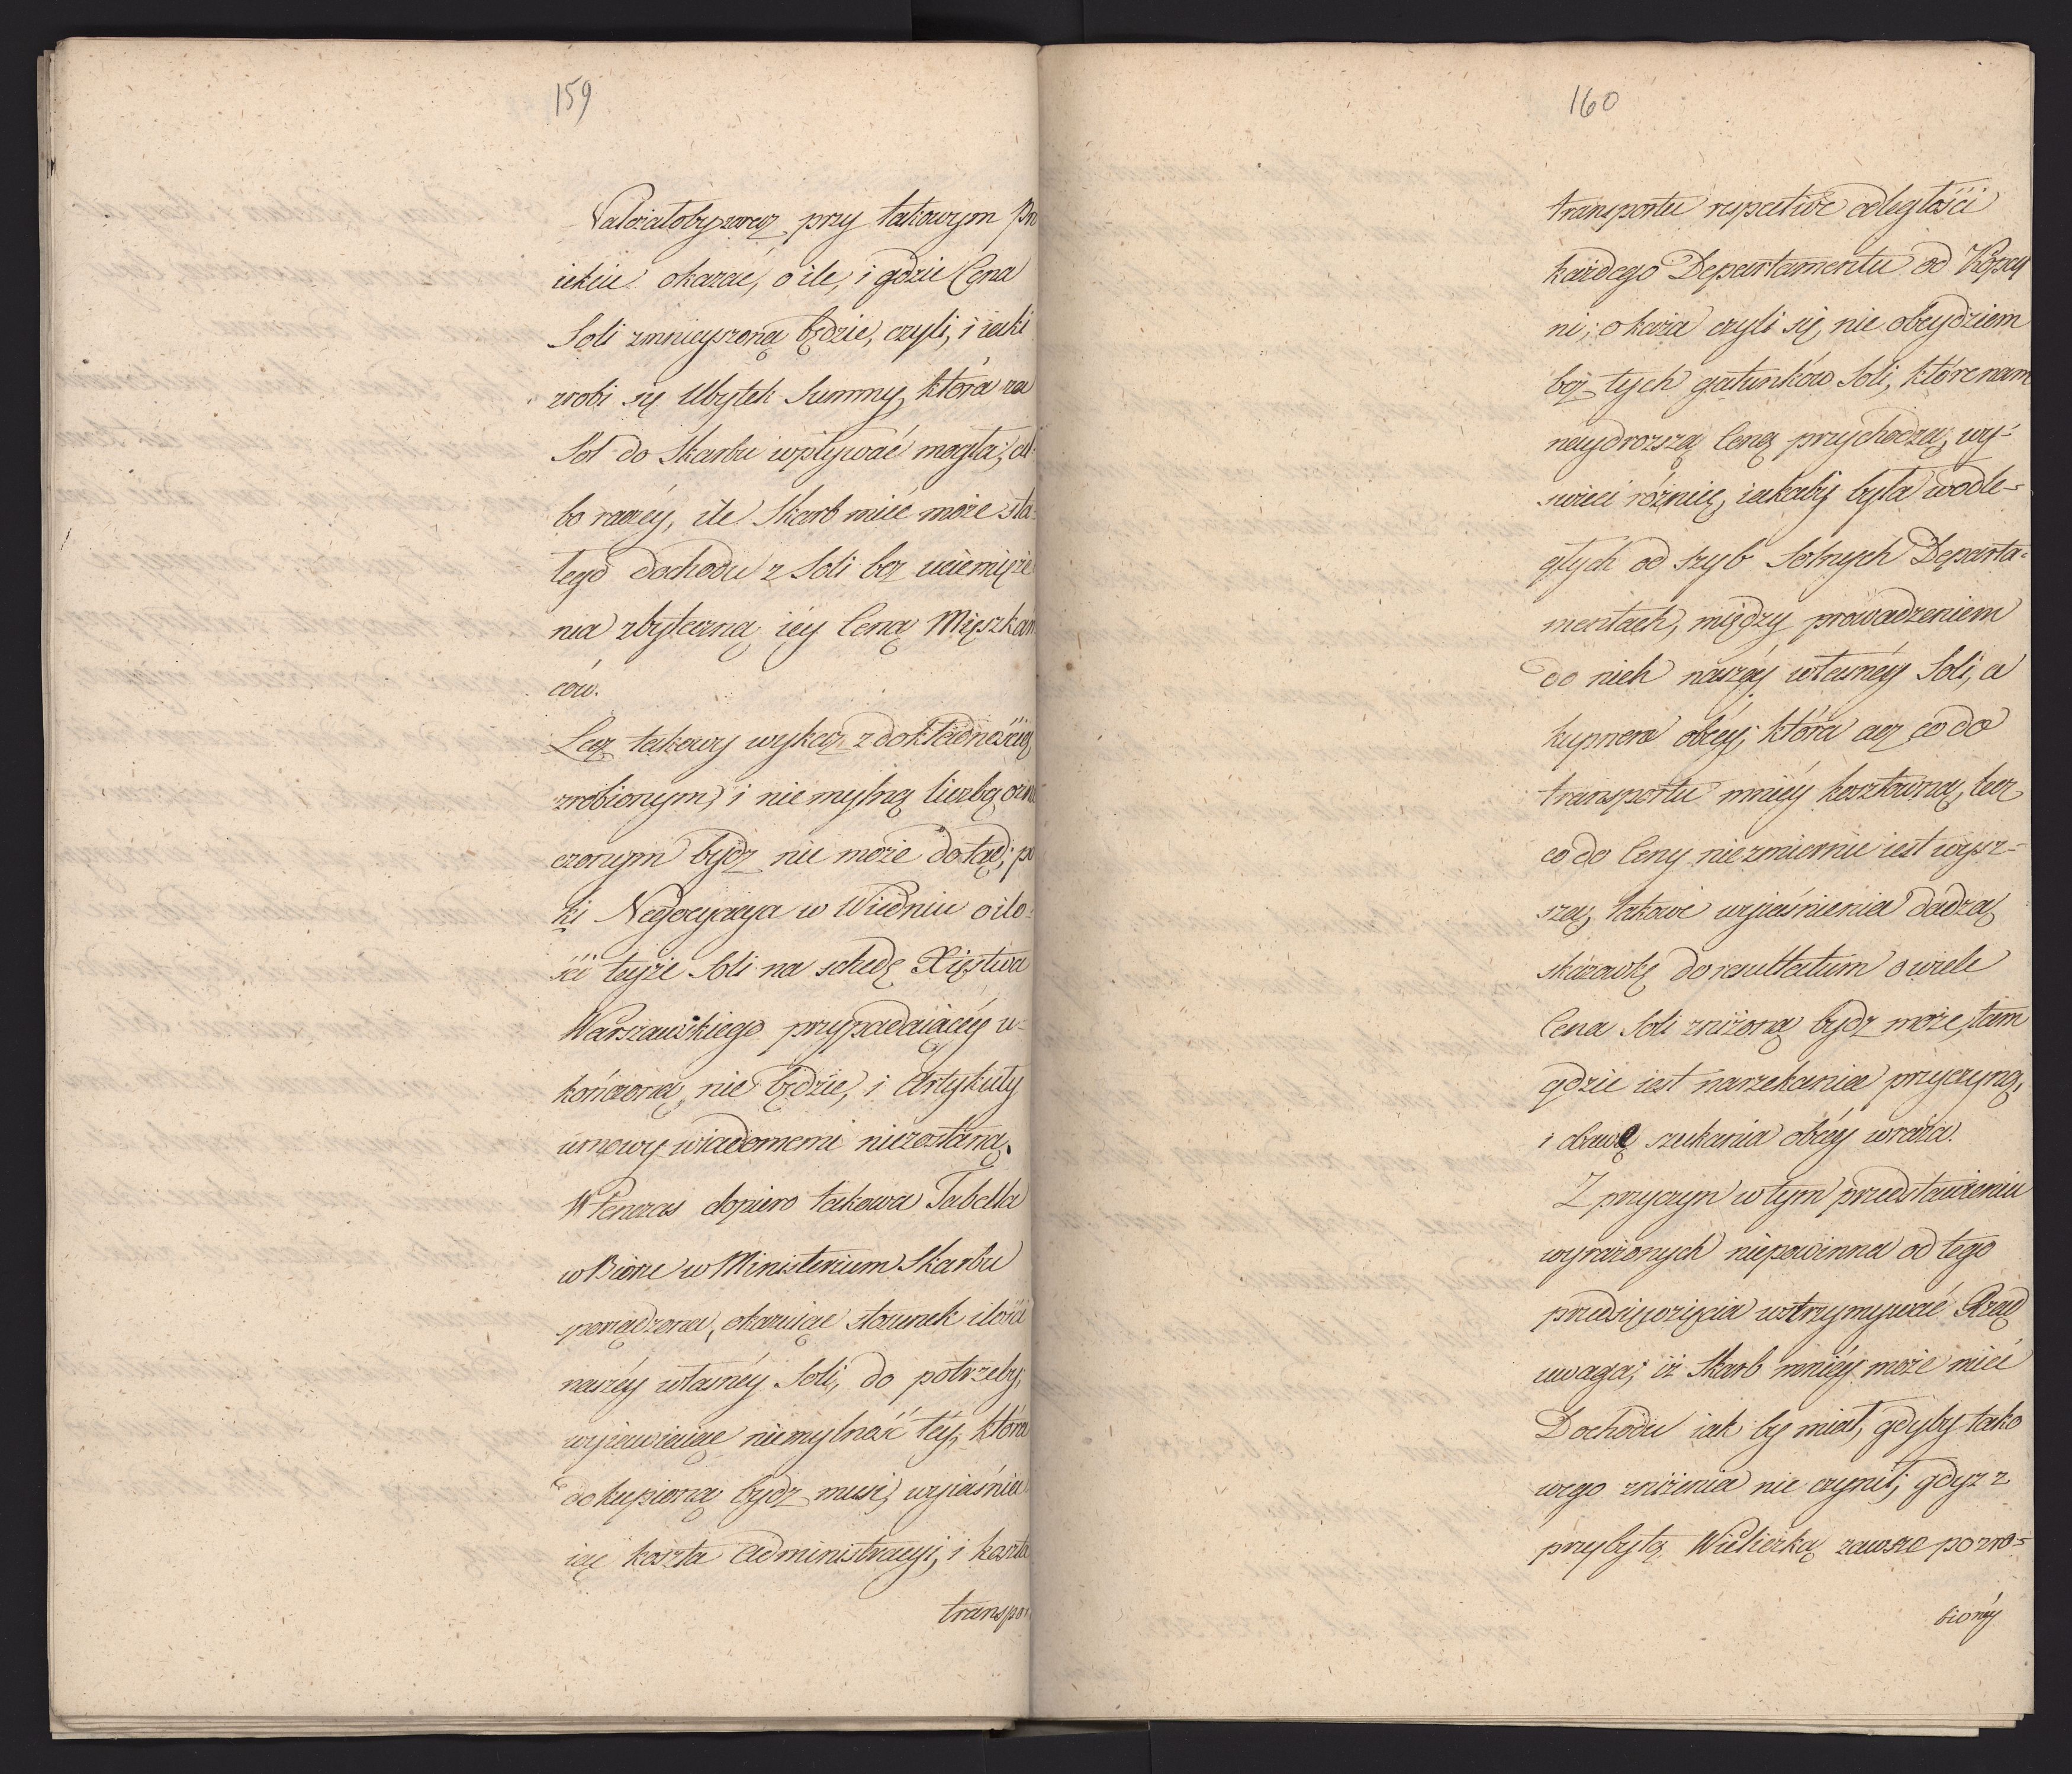 159
Należałoby zaraz przy takowym Pro
iekcie okazać, o ile, i gdzie Cena
Soli zmnieyszoną będzie, czyli, i iaki
zrobi się Ubytek Summy, która za
Sól do Skarbu wpływać mogła; al-
bo raczéy, ile Skarb mieć może sta-
łego dochodu z Soli bez uciemięże
nia zbyteczną iéy Ceną Mięszkań
ców.
Lecz takowy wykaz z dokładnością
zrobionym, i nie mylną liczbą ozna
czonym bydz nie może dotąd; po
ki Negocyacya w Wiedniu o ilo-
ści teyże Soli na schedę Xięstwa
Warszawskiego przypadaiącéy u-
kończoną nie będzie, i Artykuły
umowy wiadomemi niezostaną.
Wtenczas dopiero takowa Tabella
w Biórze w Ministerium Skarbu
porządzona, okazuiąc stosunek ilości
naszéy własnéy Soli, do potrzeby;
wyjawiaiąc niemylność téy, która
dokupioną bydz musi, wyiaśnia
iąc koszta Administracyi, i koszta
transpor
160
transportu respective odległości
każdego Departamentu od Kopal
ni; okaża czyli się nie obeydziem
bez tych gatunków Soli, które nam
naydrozszą Ceną przychodzą, wy-
świeci różnicę, iakaby była w odle-
głych od szyb Solnych Departa-
mentach, między prowadzeniem
do nich naszéy własnéy Soli, a
kupnem obcéy; która acz co do
transportu mniéy kosztowną, lecz
co do Ceny niezmiernie iest wyż-
szą, takowe wyiaśnienia dadzą
skazowkę do resultatum o wiele
Cena Soli zniżoną bydz może, tam
gdzie iest narzekania przyczyną,
i obawę szukania obcéy wraża.
Z przyczyn w tym przedstawieniu
wyrażonych niepowinna od tego
przedsięwzięcia wstrzymywać Rząd
uwaga; iż Skarb mniéy może mieć
Dochodu iak by miał, gdyby tako
wego zniżenia nie czynił; gdyz z
przybyłą Wieliczką zawsze pozro-
bionéy